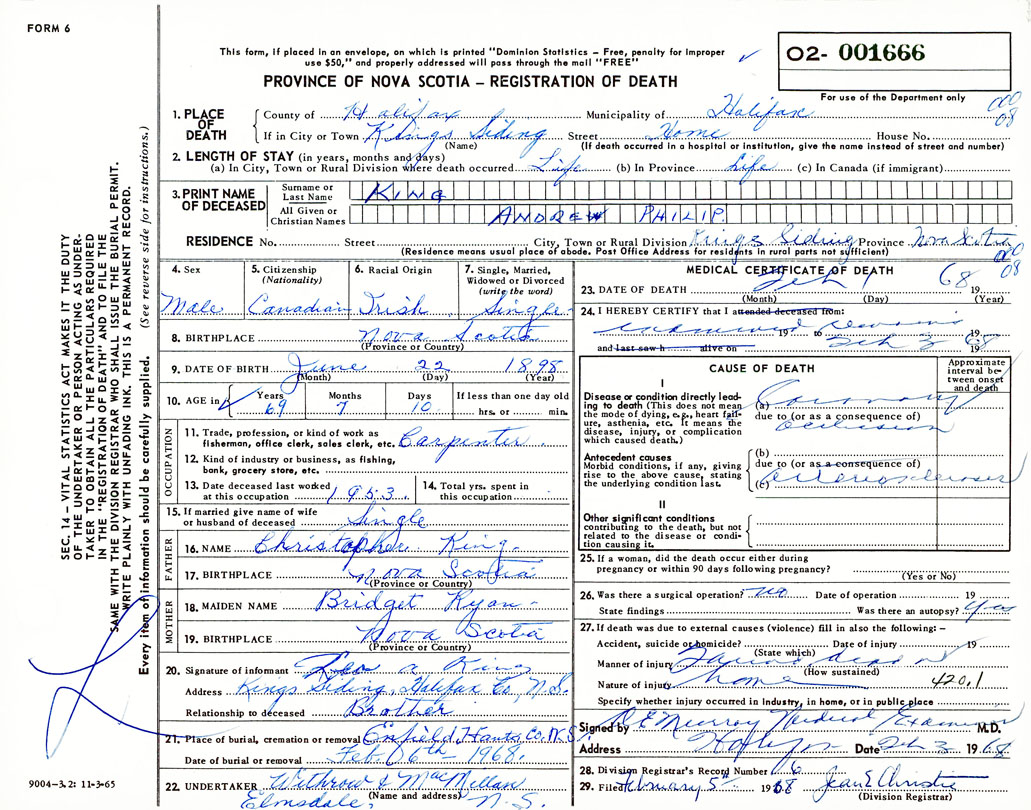 FORM 6
This form, if placed in an envelope, on which is printed "Dominion Statistics – Free, penalty for improper
use $50," and properly addressed will pass through the mail "FREE"
O2- 001666
PROVINCE OF NOVA SCOTIA – REGISTRATION OF DEATH
For use of the Department only
1. PLACE OF DEATH County of Halifax Municipality of Halifax
If in City or Town Kings Siding Street Home House No.
(Name) (If death occurred in a hospital or institution, give the name instead of street and number)
2. LENGTH OF STAY (in years, months and days)
(a) In City, Town or Rural Division where death occurred Life (b) In Province Life (c) In Canada (if immigrant)
3. PRINT NAME OF DECEASED
Surname or Last Name KING
All Given or Christian Names ANDREW PHILIP
RESIDENCE No. Street City, Town or Rural Division Kings Siding Province Nova Scotia
(Residence means usual place of abode. Post Office Address for residents in rural parts not sufficient)
4. Sex Male
5. Citizenship (Nationality) Canadian
6. Racial Origin Irish
7. Single, Married, Widowed or Divorced (write the word) Single
8. BIRTHPLACE Nova Scotia
(Province or Country)
9. DATE OF BIRTH June 22 1898
(Month) (Day) (Year)
10. AGE in Years 69 Months 7 Days 10 If less than one day old hrs. or min.
OCCUPATION
11. Trade, profession, or kind of work as
fisherman, office clerk, sales clerk, etc. Carpenter
12. Kind of industry or business, as fishing,
bank, grocery store, etc.
13. Date deceased last worked at this occupation 1953
14. Total yrs. spent in this occupation
15. If married give name of wife or husband of deceased Single
FATHER
16. NAME Christopher King
17. BIRTHPLACE Nova Scotia
(Province or Country)
MOTHER
18. MAIDEN NAME Bridget Ryan
19. BIRTHPLACE Nova Scotia
(Province or Country)
20. Signature of informant a. King
Address Kings Siding, Halifax Co, N.S.
Relationship to deceased Brother
21. Place of burial, cremation or removal Enfield, Hants Co. N.S.
Date of burial or removal Feb. 6th 1968
22. UNDERTAKER Withrow & MacMillan
(Name and address)
Elmsdale, N.S.
MEDICAL CERTIFICATE OF DEATH
23. DATE OF DEATH Feb 1 68 19
(Month) (Day) (Year)
24. I HEREBY CERTIFY that I attended deceased from:
19 to 19
and last saw h alive on Feb 3 1968
CAUSE OF DEATH
Approximate interval between onset and death
I
Disease or condition directly leading to death (This does not mean
the mode of dying, e.g., heart failure, asthenia, etc. It means the
disease, injury, or complication which caused death.)
(a) Coronary
due to (or as a consequence of)
occlusion
Antecedent causes
Morbid conditions, if any, giving rise to the above cause, stating
the underlying condition last.
(b)
due to (or as a consequence of)
(c) arteriosclerosis
II
Other significant conditions
contributing to the death, but not related to the disease or condition causing it.
25. If a woman, did the death occur either during
pregnancy or within 90 days following pregnancy?
(Yes or No)
26. Was there a surgical operation? no Date of operation 19
State findings Was there an autopsy? yes
27. If death was due to external causes (violence) fill in also the following: –
Accident, suicide or homicide? Date of injury 19
(State which)
Manner of injury Found dead at
(How sustained)
Nature of injury home 420.1
Specify whether injury occurred in Industry, in home, or in public place
Signed by Murray Medical Examiner M.D.
Address Halifax Date Feb 3 1968
28. Division Registrar's Record Number 6
29. Filed February 5th 1968 Jean E Christie
(Division Registrar)
SEC. 14 – VITAL STATISTICS ACT MAKES IT THE DUTY
OF THE UNDERTAKER OR PERSON ACTING AS UNDER-
TAKER TO OBTAIN ALL THE PARTICULARS REQUIRED
IN THE "REGISTRATION OF DEATH" AND TO FILE THE
SAME WITH THE DIVISION REGISTRAR WHO SHALL ISSUE THE BURIAL PERMIT.
WRITE PLAINLY WITH UNFADING INK. THIS IS A PERMANENT RECORD.
Every item of information should be carefully supplied. (See reverse side for instructions.)
9004–3.2: 11-3-65